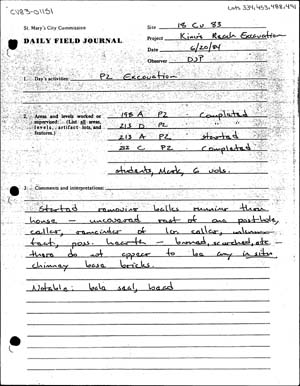 CV83-01151
Lots 334, 453, 488, 494
St. Mary's City Commission
Site 18 Cv 83
DAILY FIELD JOURNAL
Project King's Reach Excavation
Date 6/20/84
Observer DJP
1. Day's activities: PZ Excavation
2. Areas and levels worked or supervised: (List all areas, levels, artifact lots, and features.)
198 A PZ - Completed
213 D PZ - " "
213 A PZ - started
222 C PZ - Completed
students, Mark, 6 vols.
3. Comments and interpretations:
Started removing balks running thru
house - uncovered rest of one posthole,
cellar, remainder of lgr. cellar,
feat, poss. hearth - burned, scorched, etc -
there do not appear to be any in situ
chimney base bricks.
Notable: bale seal, bead